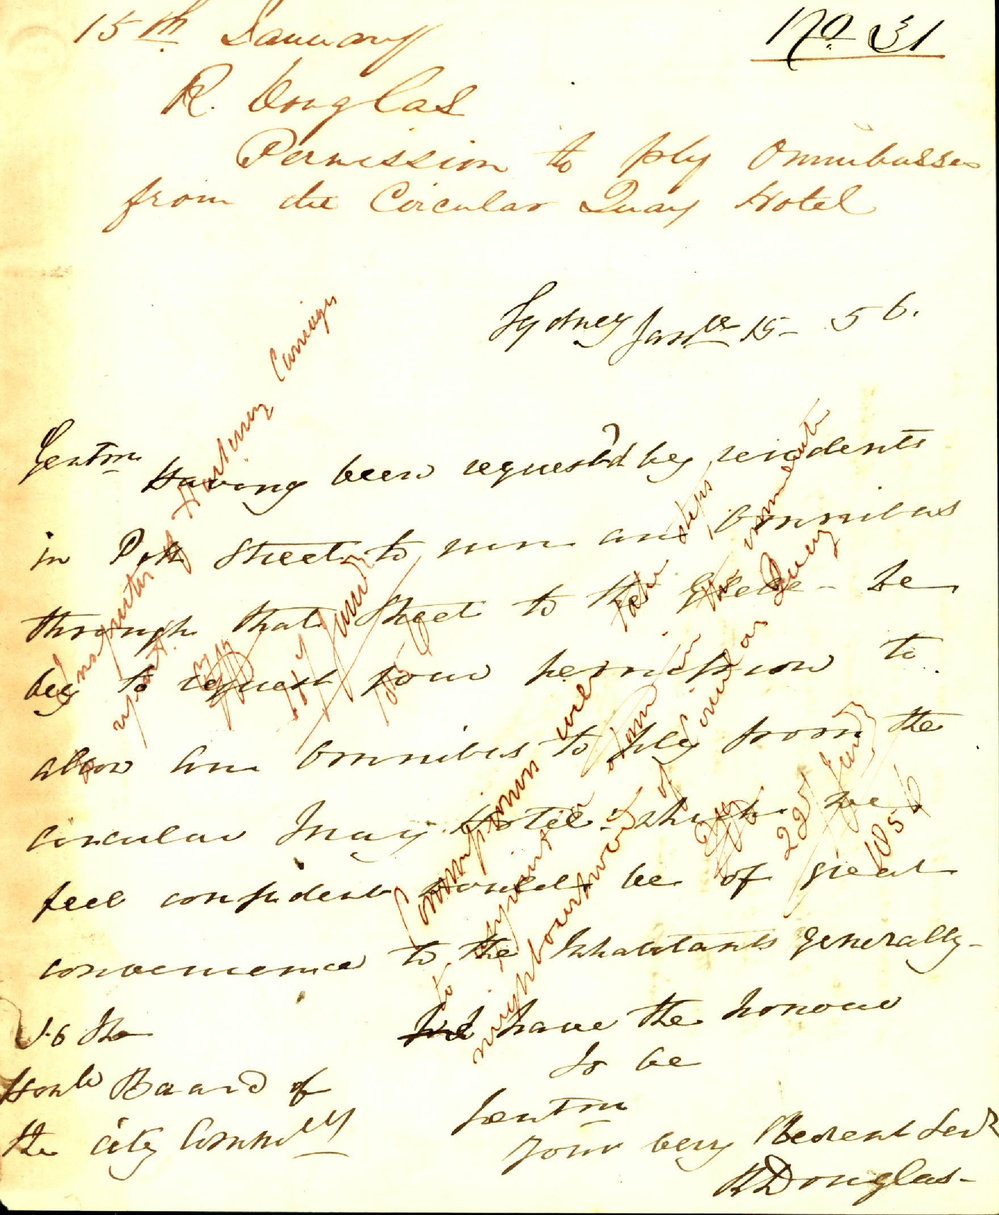 15th January
No 31
R. Douglas
Permission to ply Omnibusses
from the Circular Quay Hotel
Sydney Jany 15 - 56.
Gentm Having been request'd by residents
in Pitt Street to run an Omnibus
through that Street to the Quay - We
beg to request your permission to
allow an Omnibus to ply from the
circular Quay Hotel which we
feel confident would be of great
convenience to the Inhabitants generally -
To the
We have the honour
to be
Honble Board of
Gentm
the City Commrs
Your very Obedent Servt
R Douglas -
Inspector of Hackney Carriages
report
15 Jany
1856
Commissioners will take steps
to appoint a stand in the immediate
neighbourhood of Circular Quay
22d Jany
1856